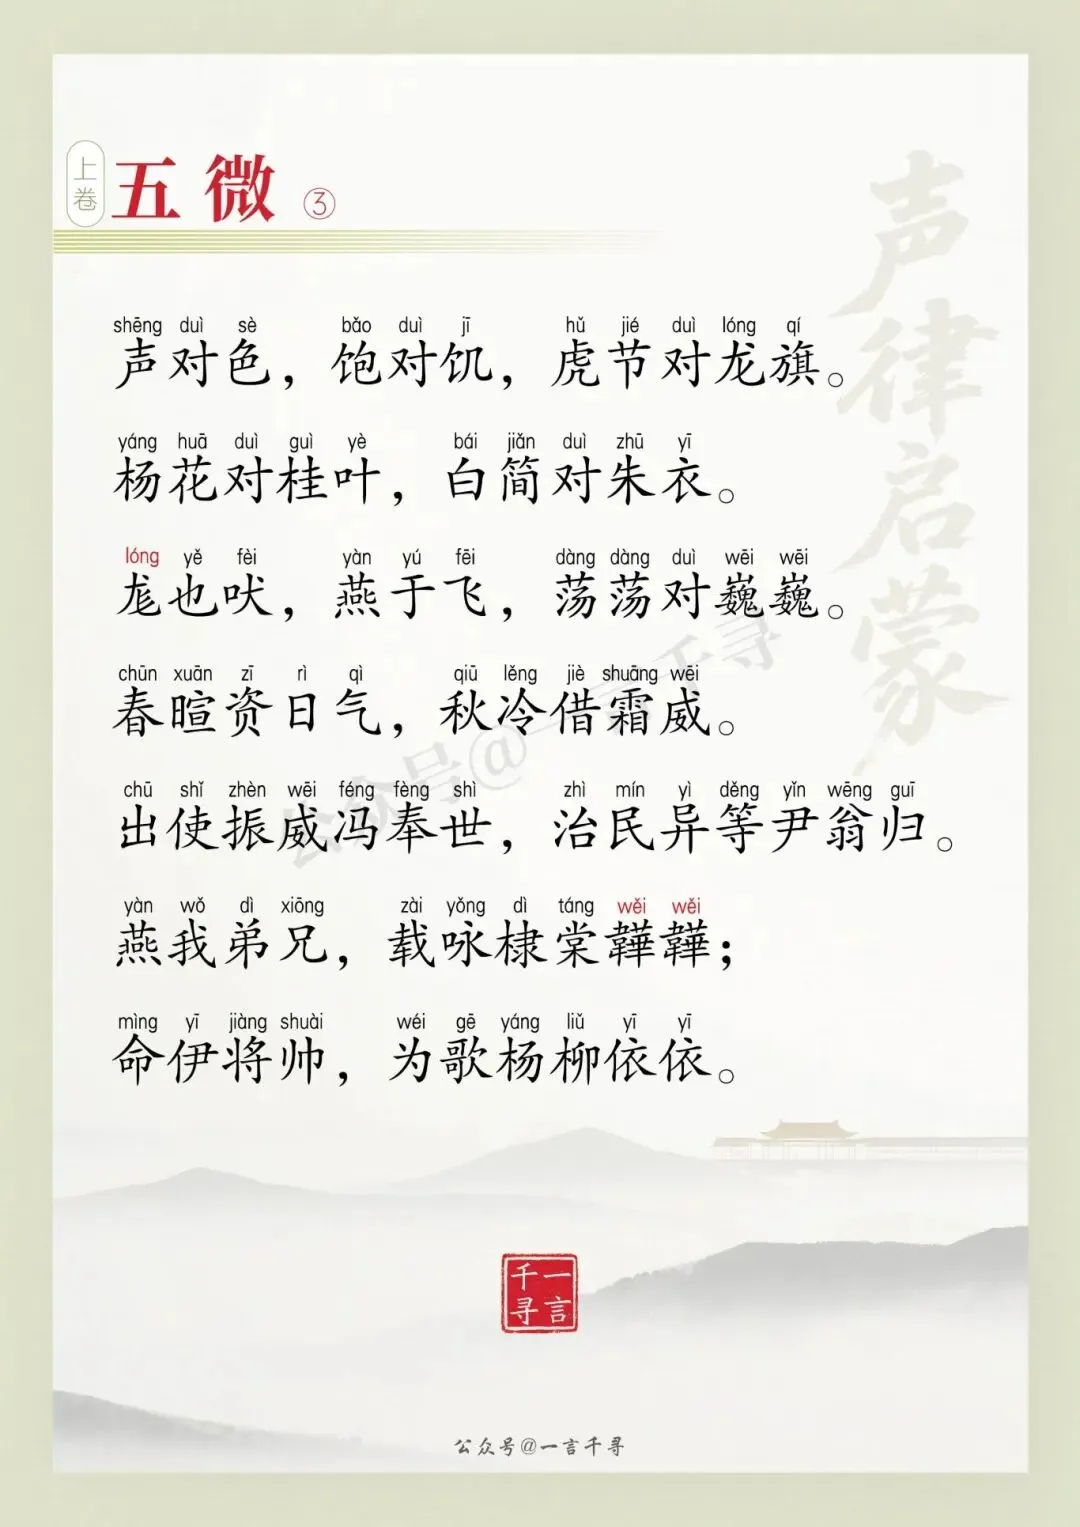 上卷
五微 ③
声律启蒙
shēng duì sè bǎo duì jī hǔ jié duì lóng qí
声对色，饱对饥，虎节对龙旗。
yáng huā duì guì yè bái jiǎn duì zhū yī
杨花对桂叶，白简对朱衣。
lóng yě fèi yàn yú fēi dàng dàng duì wēi wēi
尨也吠，燕于飞，荡荡对巍巍。
chūn xuān zī rì qì qiū lěng jiè shuāng wēi
春暄资日气，秋冷借霜威。
chū shǐ zhèn wēi féng fèng shì zhì mín yì děng yǐn wēng guī
出使振威冯奉世，治民异等尹翁归。
yàn wǒ dì xiōng zài yǒng dì táng wěi wěi
燕我弟兄，载咏棣棠韡韡；
mìng yī jiàng shuài wéi gē yáng liǔ yī yī
命伊将帅，为歌杨柳依依。
公众号@一言千寻
一言千寻
公众号@一言千寻